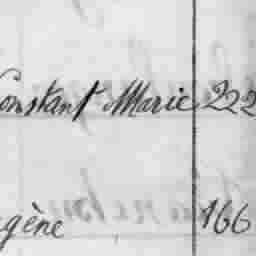 Constant Marie 222
gène 166